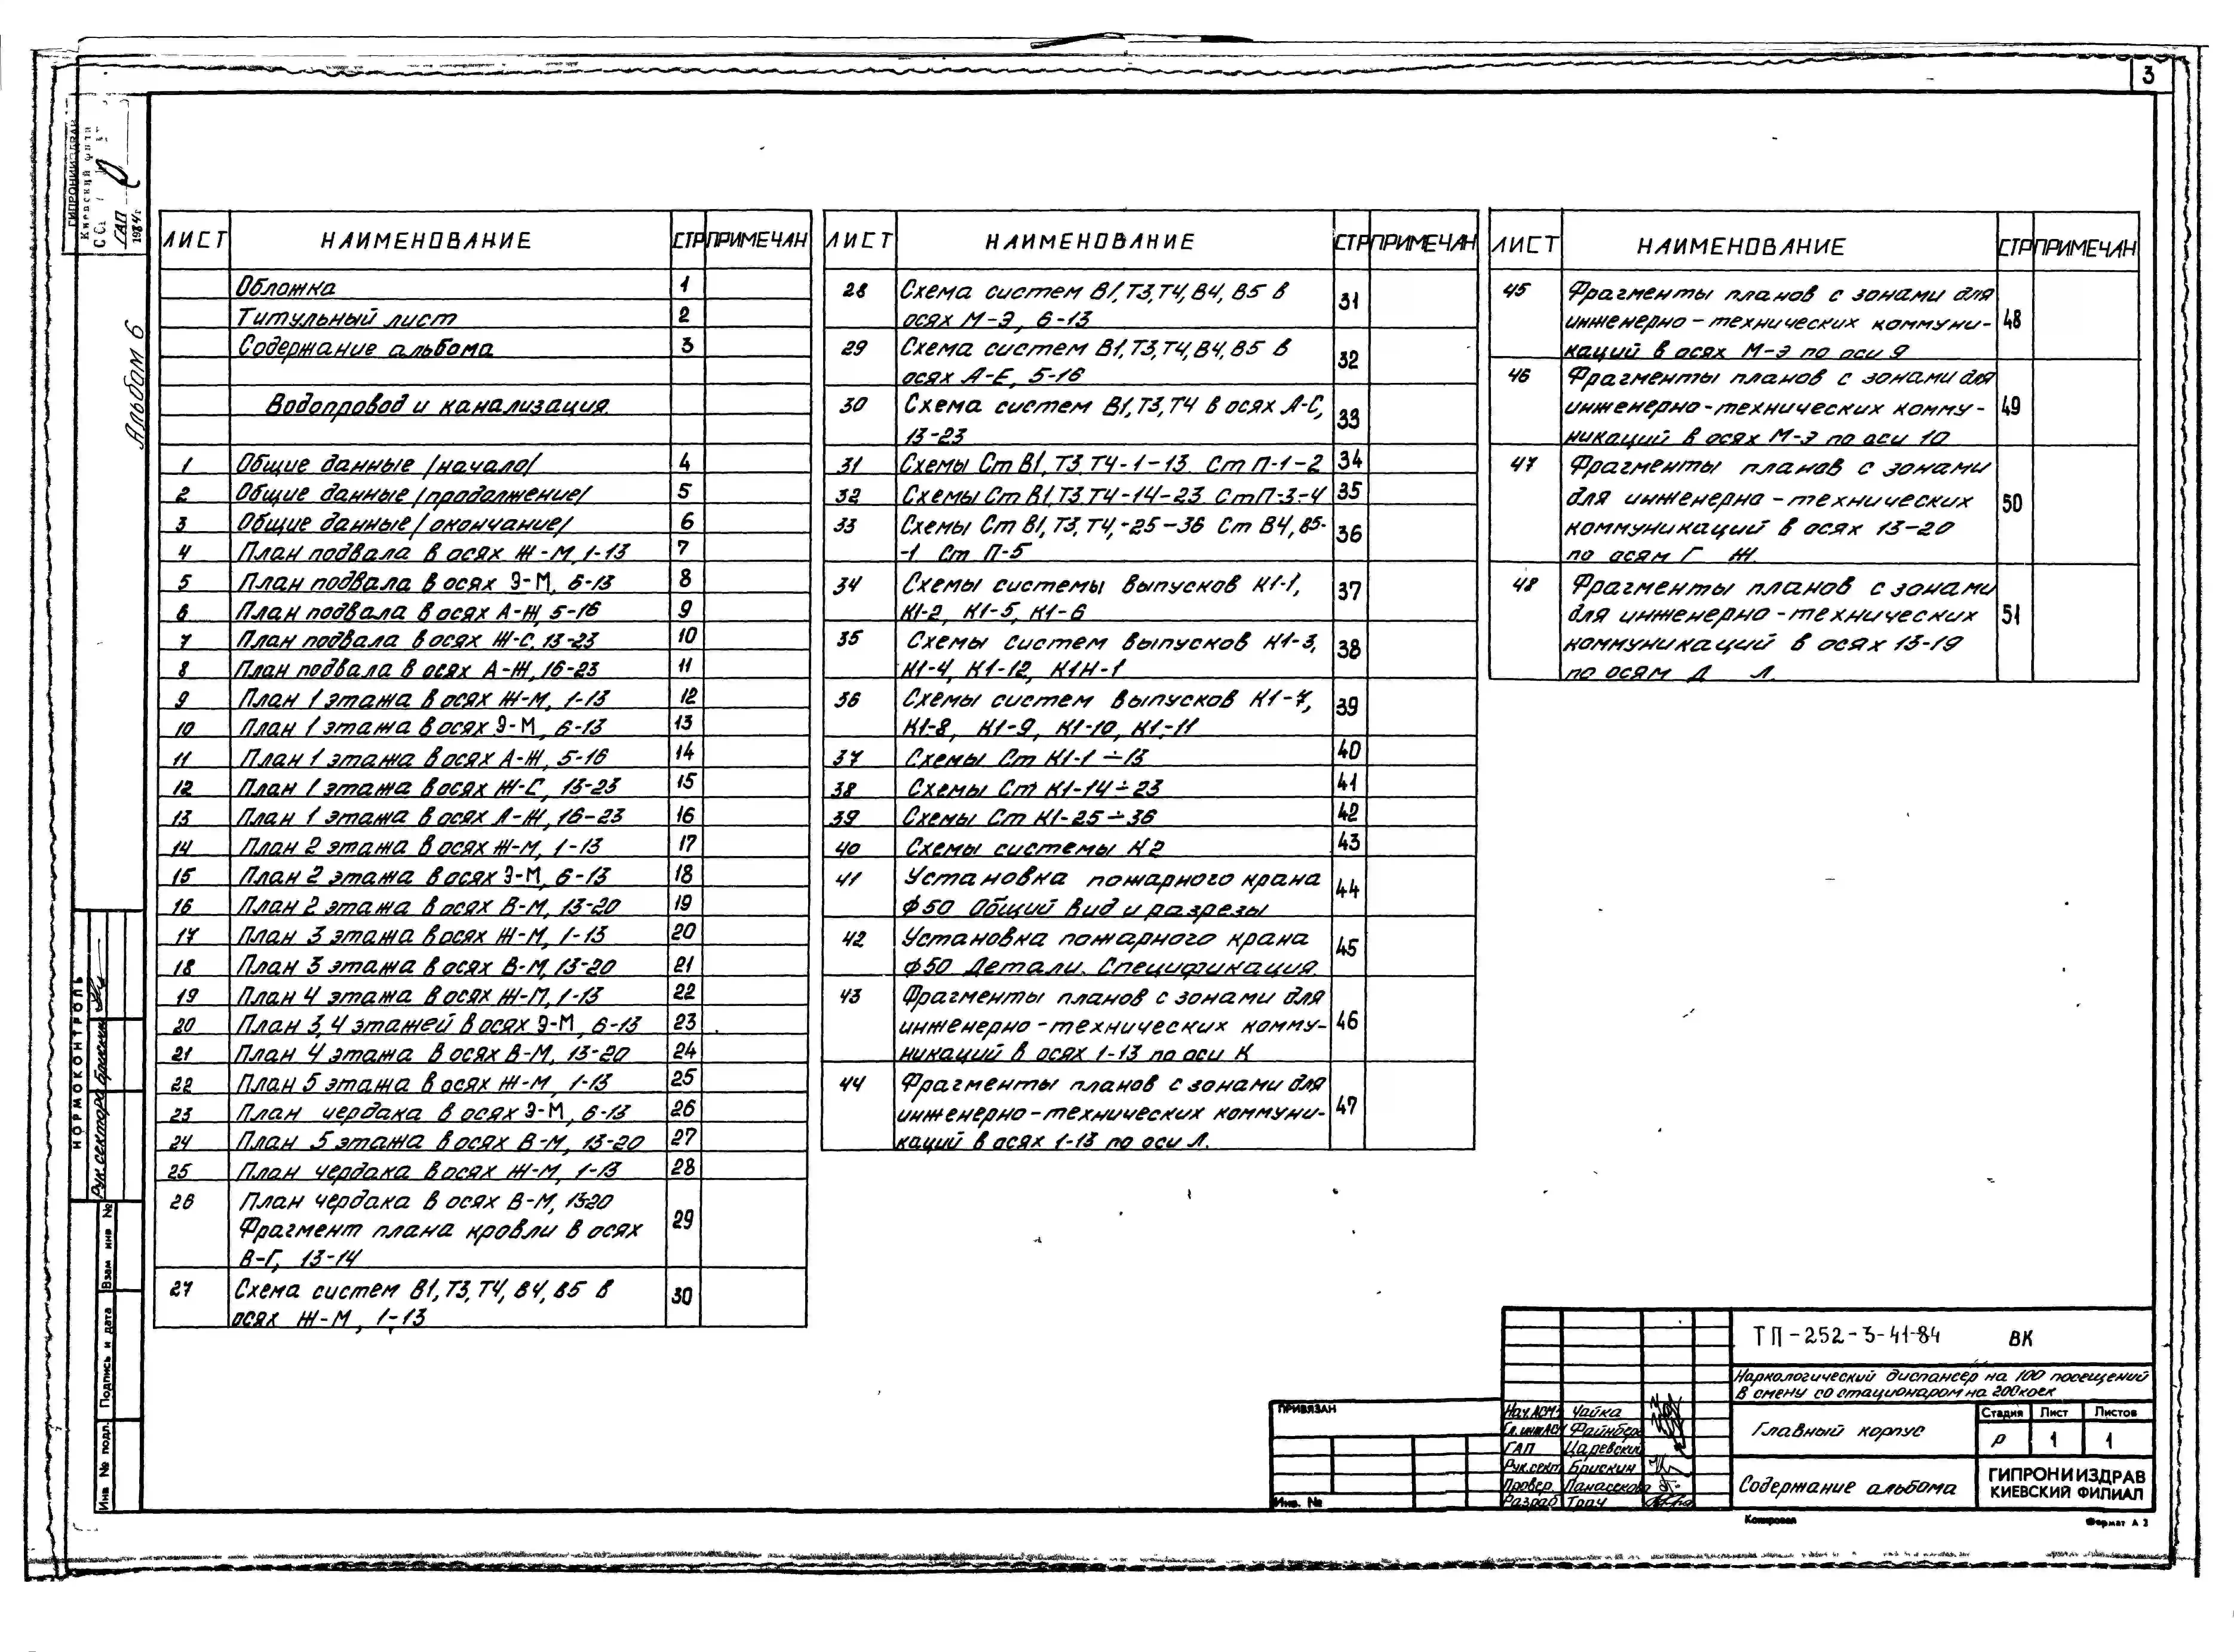 3
ГИПРОНИИЗДРАВ
ГАП
1984г.
Альбом 6
ЛИСТ НАИМЕНОВАНИЕ СТР ПРИМЕЧАН
Обложка 1
Титульный лист 2
Содержание альбома 3
Водопровод и канализация.
1 Общие данные /начало/ 4
2 Общие данные /продолжение/ 5
3 Общие данные /окончание/ 6
4 План подвала в осях Ж-М, 1-13 7
5 План подвала в осях Э-М, 6-13 8
6 План подвала в осях А-Ж, 5-16 9
7 План подвала в осях Ж-С, 13-23 10
8 План подвала в осях А-Ж, 16-23 11
9 План 1 этажа в осях Ж-М, 1-13 12
10 План 1 этажа в осях Э-М, 6-13 13
11 План 1 этажа в осях А-Ж, 5-16 14
12 План 1 этажа в осях Ж-С, 13-23 15
13 План 1 этажа в осях А-Ж, 16-23 16
14 План 2 этажа в осях Ж-М, 1-13 17
15 План 2 этажа в осях Э-М, 6-13 18
16 План 2 этажа в осях В-М, 13-20 19
17 План 3 этажа в осях Ж-М, 1-13 20
18 План 3 этажа в осях В-М, 13-20 21
19 План 4 этажа в осях Ж-М, 1-13 22
20 План 3,4 этажей в осях Э-М, 6-13 23
21 План 4 этажа в осях В-М, 13-20 24
22 План 5 этажа в осях Ж-М, 1-13 25
23 План чердака в осях Э-М, 6-13 26
24 План 5 этажа в осях В-М, 13-20 27
25 План чердака в осях Ж-М, 1-13 28
26 План чердака в осях В-М, 13-20 29
Фрагмент плана кровли в осях
В-Г, 13-14
27 Схема систем В1, Т3, Т4, В4, В5 в 30
осях Ж-М, 1-13
ЛИСТ НАИМЕНОВАНИЕ СТР ПРИМЕЧАН
28 Схема систем В1, Т3, Т4, В4, В5 в 31
осях М-Э, 6-13
29 Схема систем В1, Т3, Т4, В4, В5 в 32
осях А-Е, 5-16
30 Схема систем В1, Т3, Т4 в осях А-С, 33
13-23
31 Схемы Ст В1, Т3, Т4-1-13. Ст П-1-2 34
32 Схемы Ст В1, Т3, Т4-14-23. Ст П-3-4 35
33 Схемы Ст В1, Т3, Т4,-25-36 Ст В4, В5- 36
-1 Ст П-5
34 Схемы системы выпусков К1-1, 37
К1-2, К1-5, К1-6
35 Схемы систем выпусков К1-3, 38
К1-4, К1-12, К1Н-1
36 Схемы систем выпусков К1-7, 39
К1-8, К1-9, К1-10, К1-11
37 Схемы Ст К1-1÷13 40
38 Схемы Ст К1-14÷23 41
39 Схемы Ст К1-25÷36 42
40 Схемы системы К2 43
41 Установка пожарного крана 44
Ф50 Общий вид и разрезы
42 Установка пожарного крана 45
Ф50 Детали. Спецификация.
43 Фрагменты планов с зонами для 46
инженерно-технических комму-
никаций в осях 1-13 по оси К
44 Фрагменты планов с зонами для 47
инженерно-технических коммуни-
каций в осях 1-13 по оси Л.
ЛИСТ НАИМЕНОВАНИЕ СТР ПРИМЕЧАН
45 Фрагменты планов с зонами для 48
инженерно-технических коммуни-
каций в осях М-Э по оси 9
46 Фрагменты планов с зонами для 49
инженерно-технических комму-
никаций в осях М-Э по оси 10
47 Фрагменты планов с зонами 50
для инженерно-технических
коммуникаций в осях 13-20
по осям Г Ж.
48 Фрагменты планов с зонами 51
для инженерно-технических
коммуникаций в осях 13-19
по осям Д Л.
НОРМОКОНТРОЛЬ
Рук.сектора Брискин
Взам инв №
Подпись и дата
Инв № подл.
ПРИВЯЗАН
Инв. №
Нач.АСМ-1 Чайка
Гл.инж.АСМ Файнберг
ГАП Царевский
Рук.сект. Брискин
Провер. Панасекова
Разраб Трач
ТП-252-3-41-84 ВК
Наркологический диспансер на 100 посещений
в смену со стационаром на 200 коек
Главный корпус
Стадия Лист Листов
Р 1 1
Содержание альбома
ГИПРОНИИЗДРАВ
КИЕВСКИЙ ФИЛИАЛ
Копировал
Формат А 3